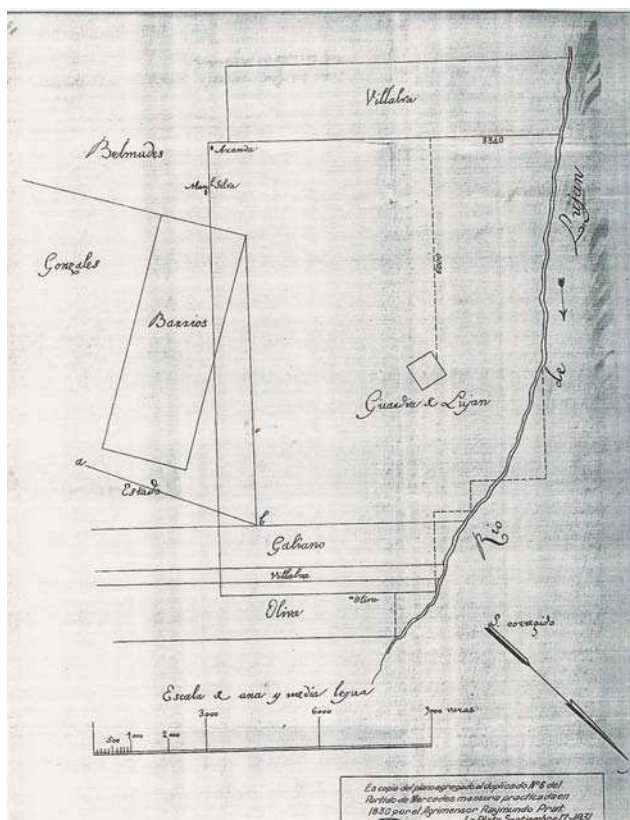 Villalva
Belmudes
Aranda
8340
Silva
Lujan
Gonzales
6000
Barrios
de
Guardia de Lujan
a
Estado
b
Galiano
Rio
Villalva
Oliva
S. corregido
Escala de una y media legua
500 1000 2000 3000 6000 9000 varas
Es copia del plano agregado al duplicado Nº 6 del
Partido de Mercedes mensura practicada en
1830 por el Agrimensor Raymundo Prat
La Plata Septiembre 17-1931